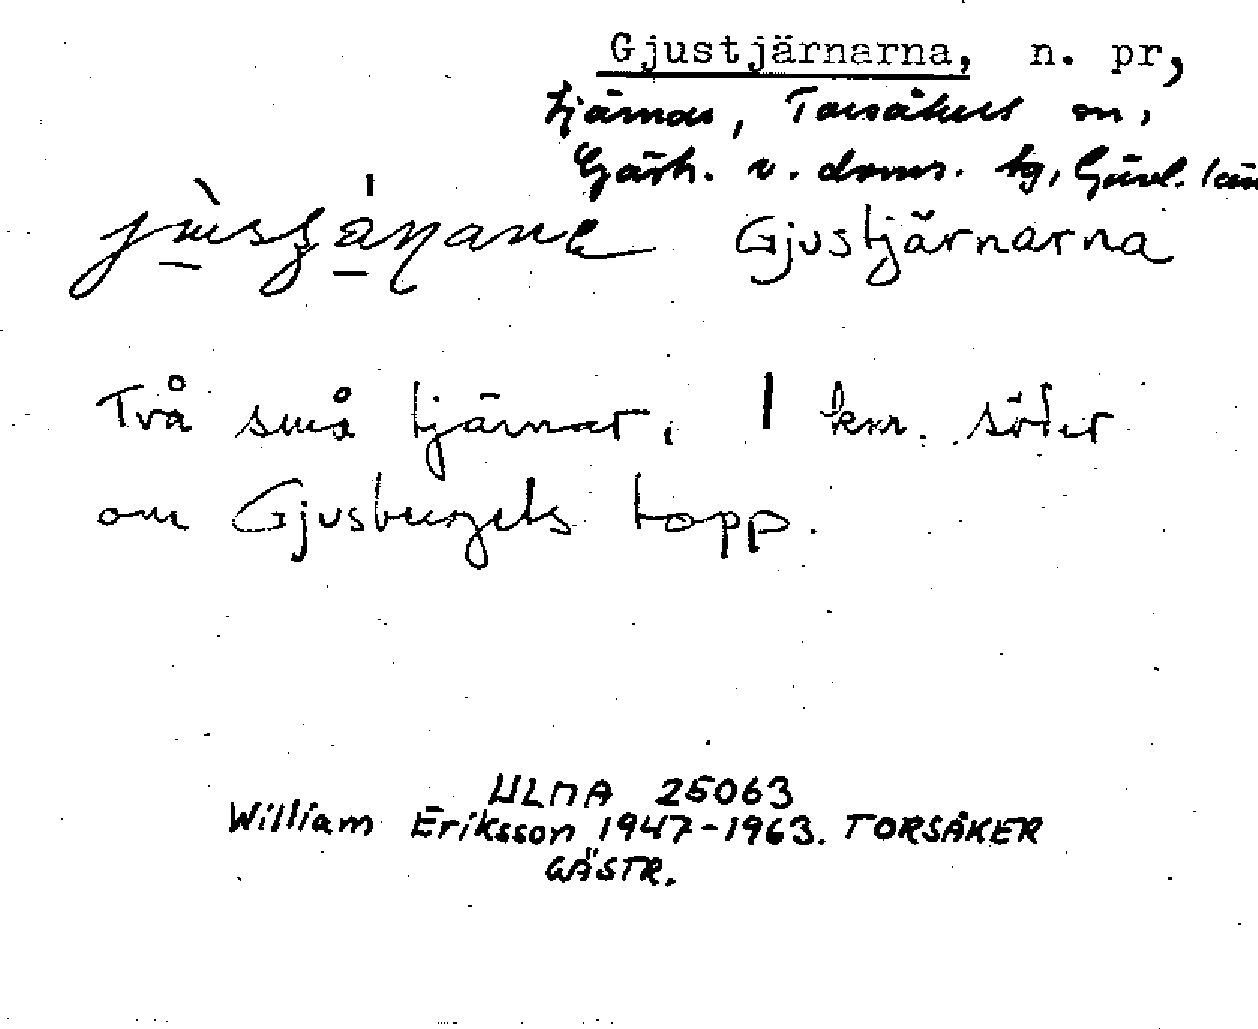 Gjustjärnarna, n. pr,
tjärnar, Torsåkers sn,
Gästr. v. doms. tg, Gävl. län
Gjustjärnarna
Två små tjärnar, 1 km. söder
om Gjusbergets topp.
ULMA 25063
William Eriksson 1947-1963. TORSÅKER
GÄSTR.